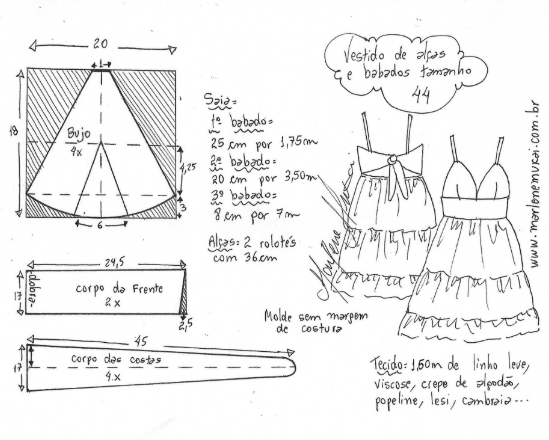 20
1
18
Bujo
4x
4,25
3
6
24,5
dobra
17
corpo da Frente
2 x
2,5
45
17
corpo das costas
4.x
Saia=
1º babado=
25 cm por 1,75m
2º babado=
20 cm por 3,50m
3º babado=
8 cm por 7m
Alças: 2 rolotés
com 36cm
Molde sem margem
de costura
Vestido de alças
e babados tamanho
44
Marlene Mukai
www.marlenemukai.com.br
Tecido: 1,60m de linho leve,
viscose, crepe de algodão,
popeline, lesi, cambraia...